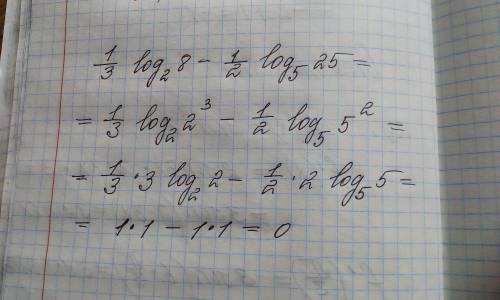 1/3 log₂8 − 1/2 log₅25 =
= 1/3 log₂2³ − 1/2 log₅5² =
= 1/3 · 3 log₂2 − 1/2 · 2 log₅5 =
= 1·1 − 1·1 = 0